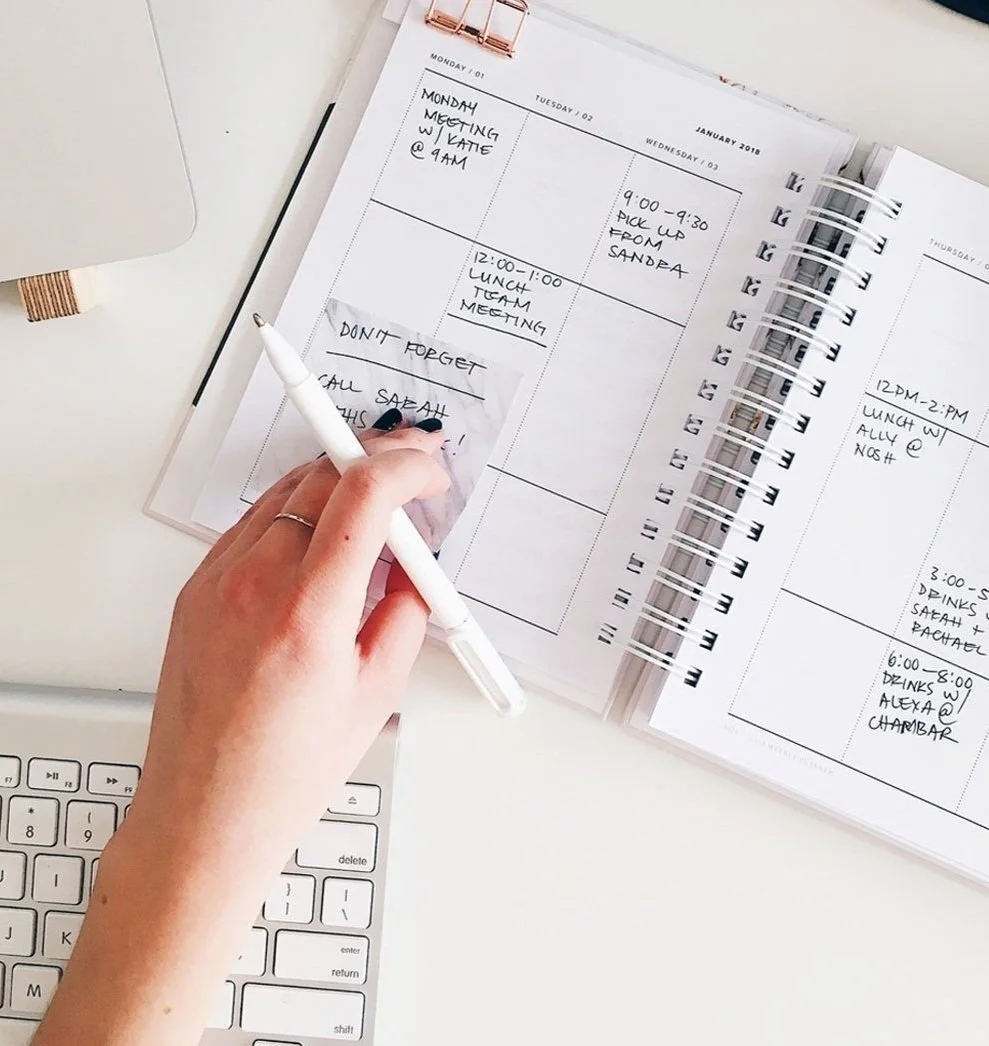 MONDAY / 01
MONDAY
MEETING
W/ KATIE
@ 9AM
TUESDAY / 02
12:00-1:00
LUNCH
TEAM
MEETING
JANUARY 2018
WEDNESDAY / 03
9:00-9:30
PICK UP
FROM
SANDRA
DON'T FORGET
CALL SARAH
THURSDAY /
12PM-2:PM
LUNCH W/
ALLY @
NOSH
3:00-5
DRINKS
SARAH +
RACHAEL
6:00-8:00
DRINKS W/
ALEXA @
CHAMBAR
F7
F8
F9
*
8
(
9
I
J
K
M
delete
}
]
|
\
enter
return
shift